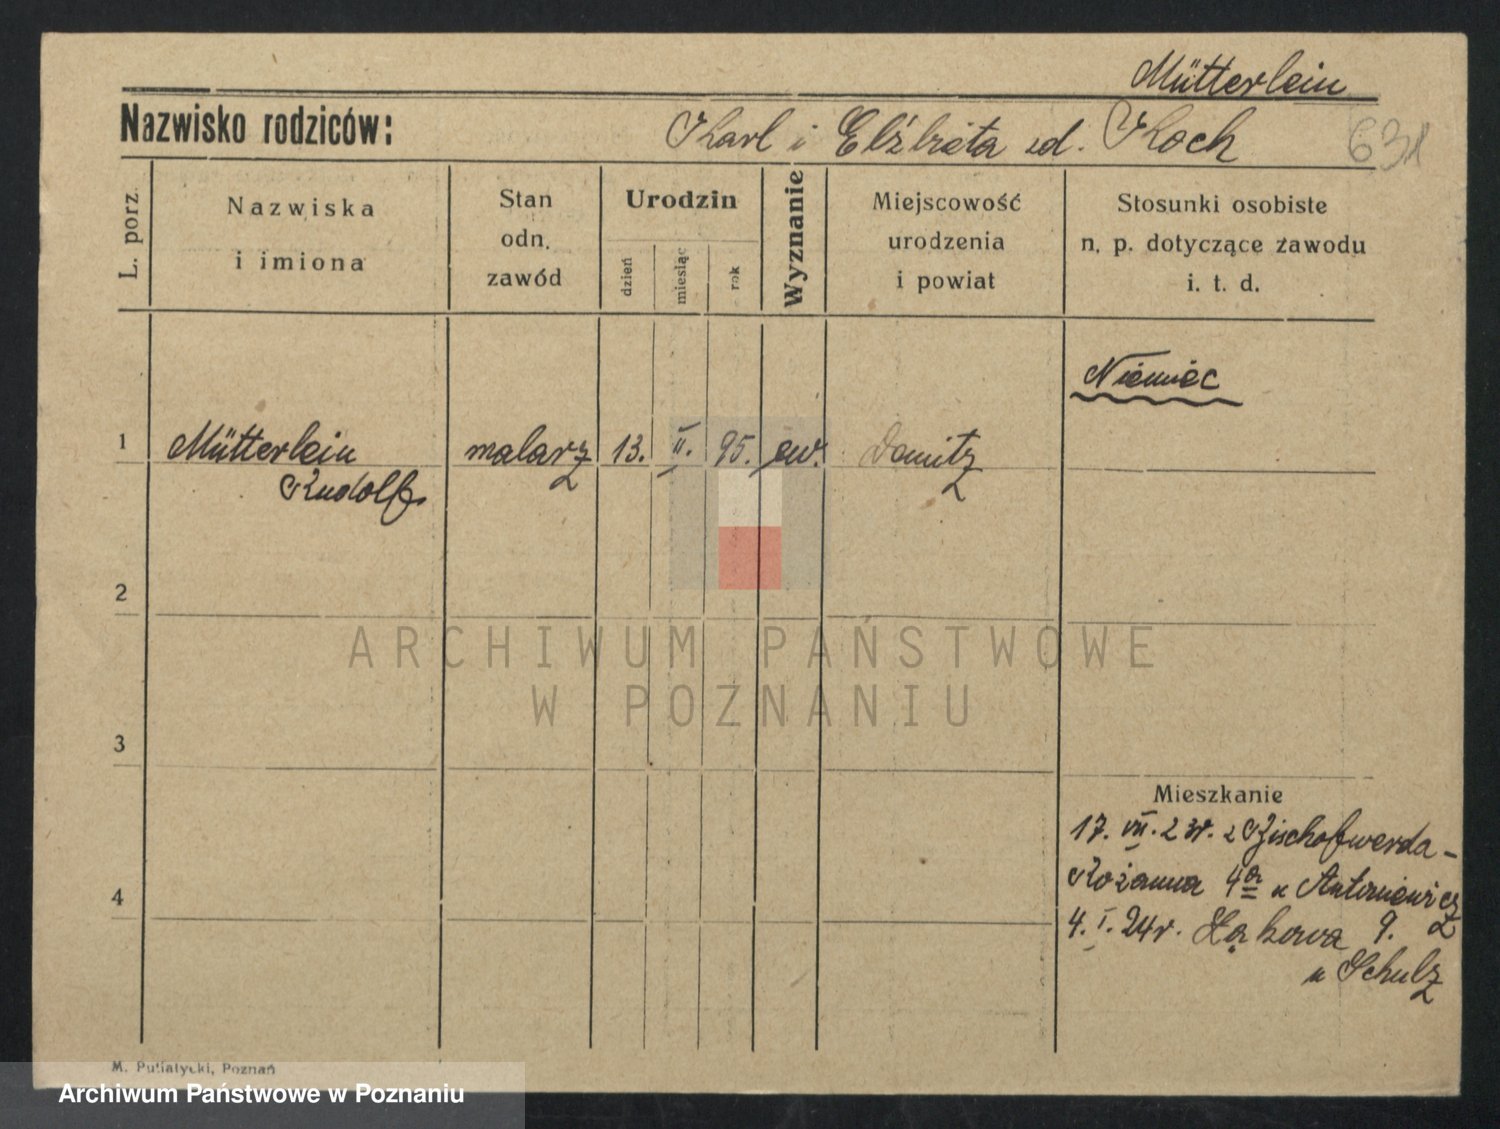 Mütterlein
Nazwisko rodziców: Karl i Elżbieta zd. Koch
631
L. porz.
Nazwiska
i imiona
Stan
odn.
zawód
Urodzin
dzień
miesiąc
rok
Wyznanie
Miejscowość
urodzenia
i powiat
Stosunki osobiste
n. p. dotyczące zawodu
i. t. d.
Niemiec
1 Mütterlein malarz 13. II. 95. ew. Domitz
Rudolf
2
ARCHIWUM PAŃSTWOWE
W POZNANIU
3
Mieszkanie
17. VII. 23r. z Bischofwerda -
Różanna 4a u Antoniewicz
4
4. I. 24r. Łąkowa 9.
u Schulz
M. Putiatycki, Poznań
Archiwum Państwowe w Poznaniu